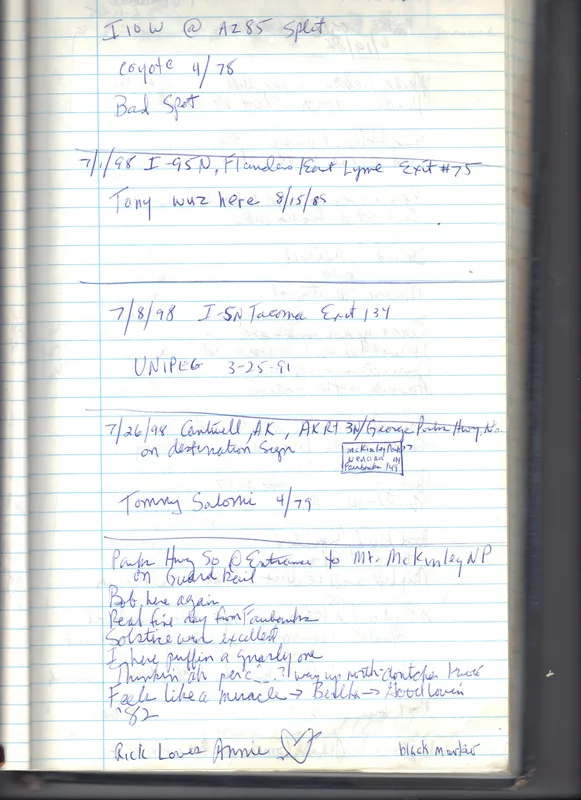 I 10 W @ AZ85 Split
Coyote 4/78
Bad Spot
7/1/98 I-95N, Flanders/East Lyme Exit #75
Tony wuz here 8/15/85
7/8/98 I-5N Tacoma Exit 134
UNIPEG 3-25-91
7/26/98 Cantwell, AK, AKRt 3N/George Parks Hwy, No.
on destination Sign
McKinley Park
Nenana
Fairbanks 149
Tommy Salomi 4/79
Parks Hwy So @ Entrance to Mt. McKinley NP
on Guard Rail
Bob, here again
Real fine day from Fairbanks
Solstice was excellent
I, here puffin a gnarly one
Thinkin ah ...? way up north dontcha
Feels like a miracle → → Good lovin
'82
Rick Loves Annie
black marker